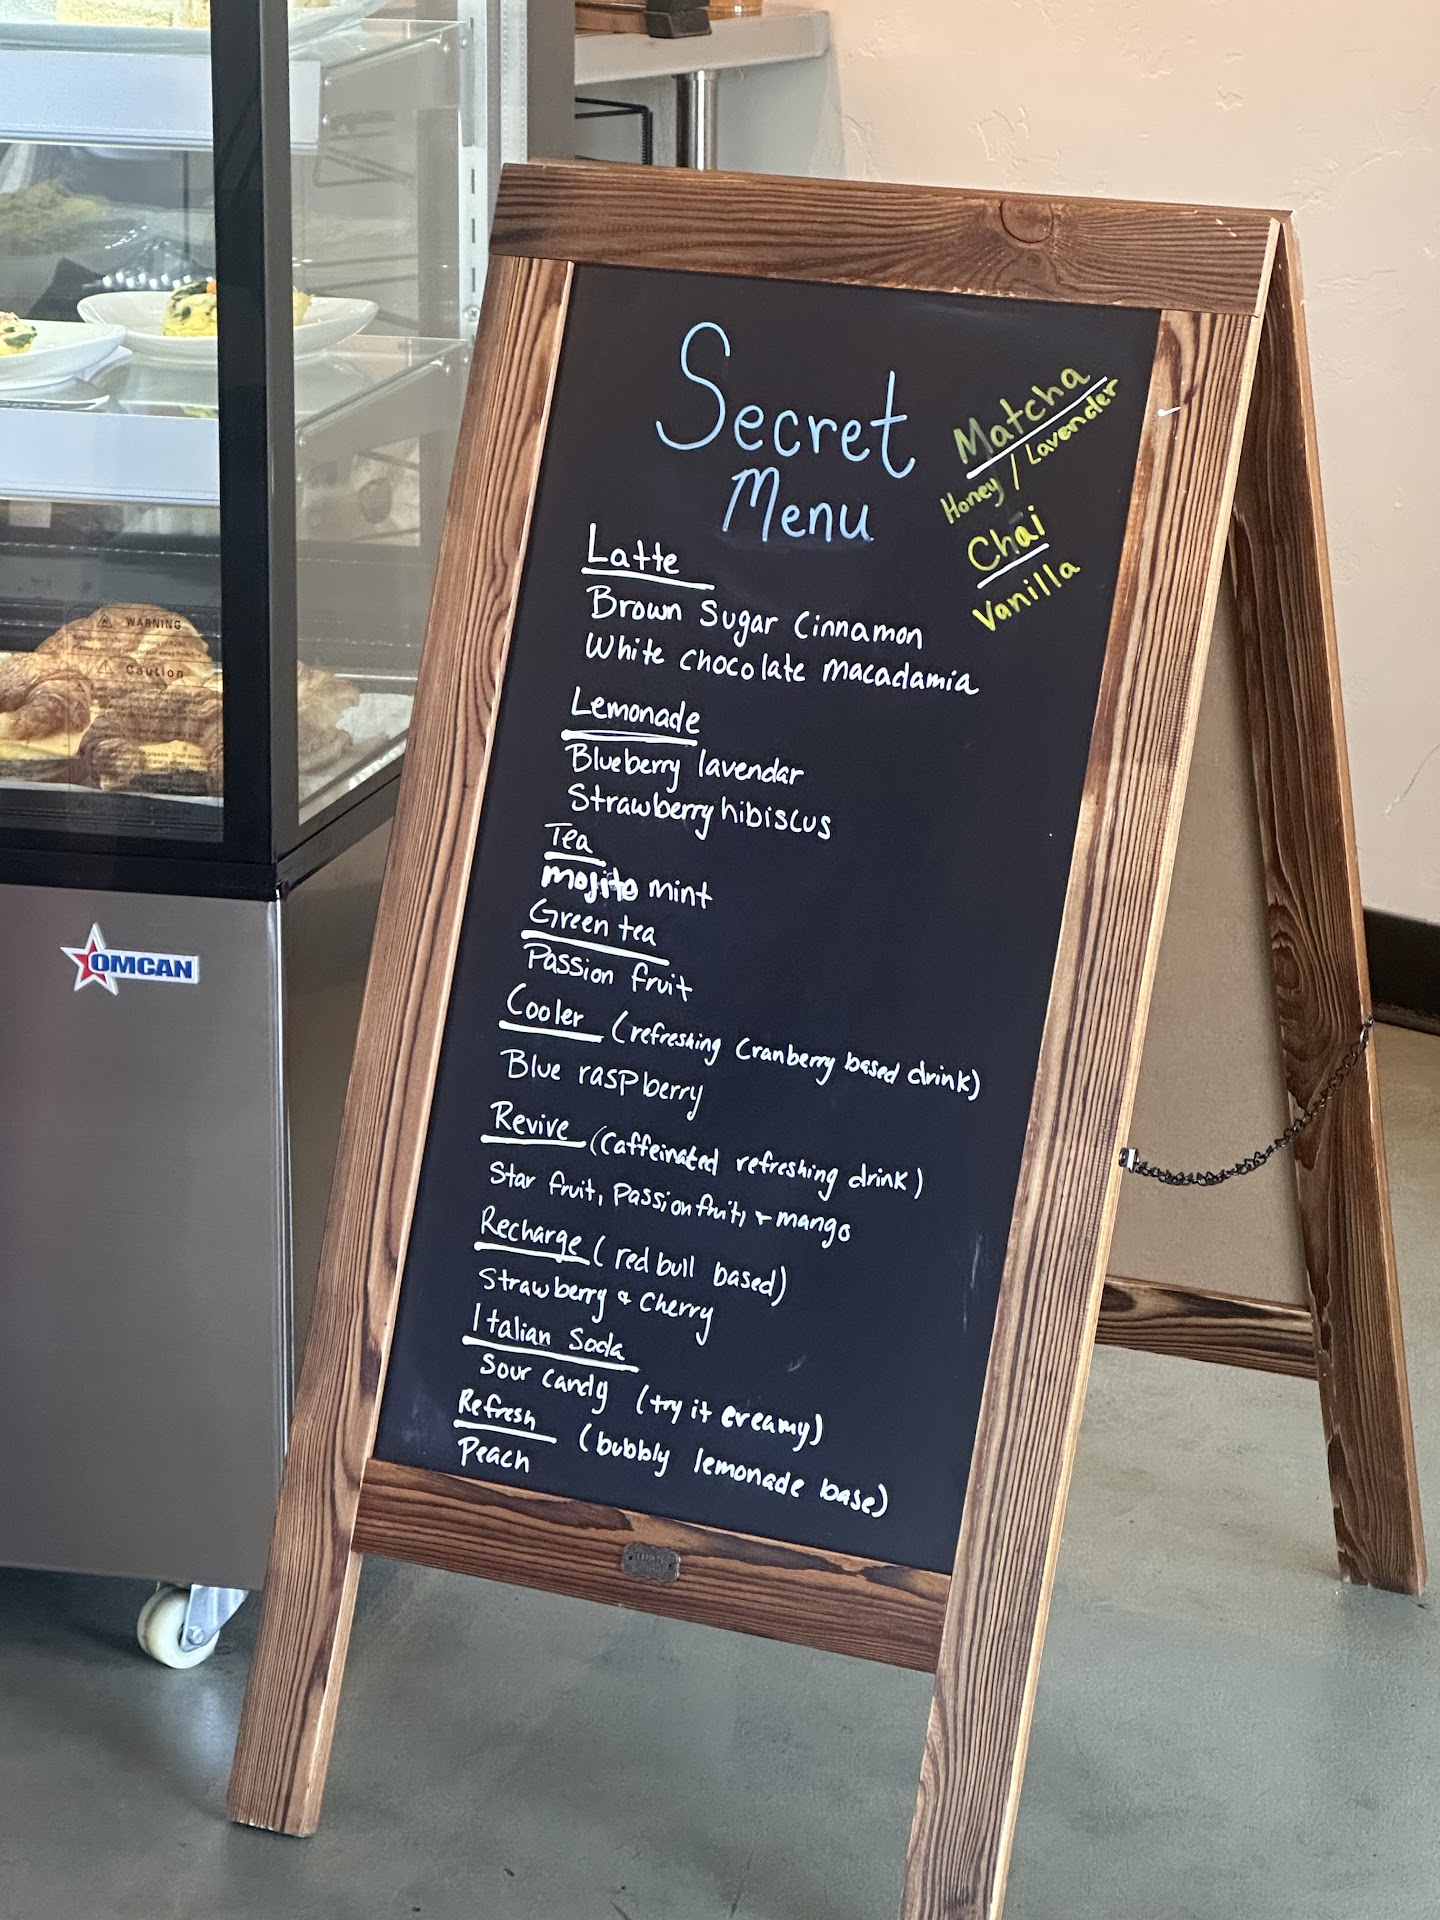 Secret
Menu
Matcha
Honey / Lavender
Chai
Vanilla
Latte
Brown Sugar Cinnamon
White chocolate Macadamia
Lemonade
Blueberry lavendar
Strawberry hibiscus
Tea
mojito mint
Green tea
Passion fruit
Cooler (refreshing Cranberry based drink)
Blue raspberry
Revive (Caffeinated refreshing drink)
Star fruit, Passion fruit, + mango
Recharge (red bull based)
Strawberry & Cherry
Italian Soda
Sour candy (try it creamy)
Refresh (bubbly lemonade base)
Peach
WARNING
Caution
OMCAN